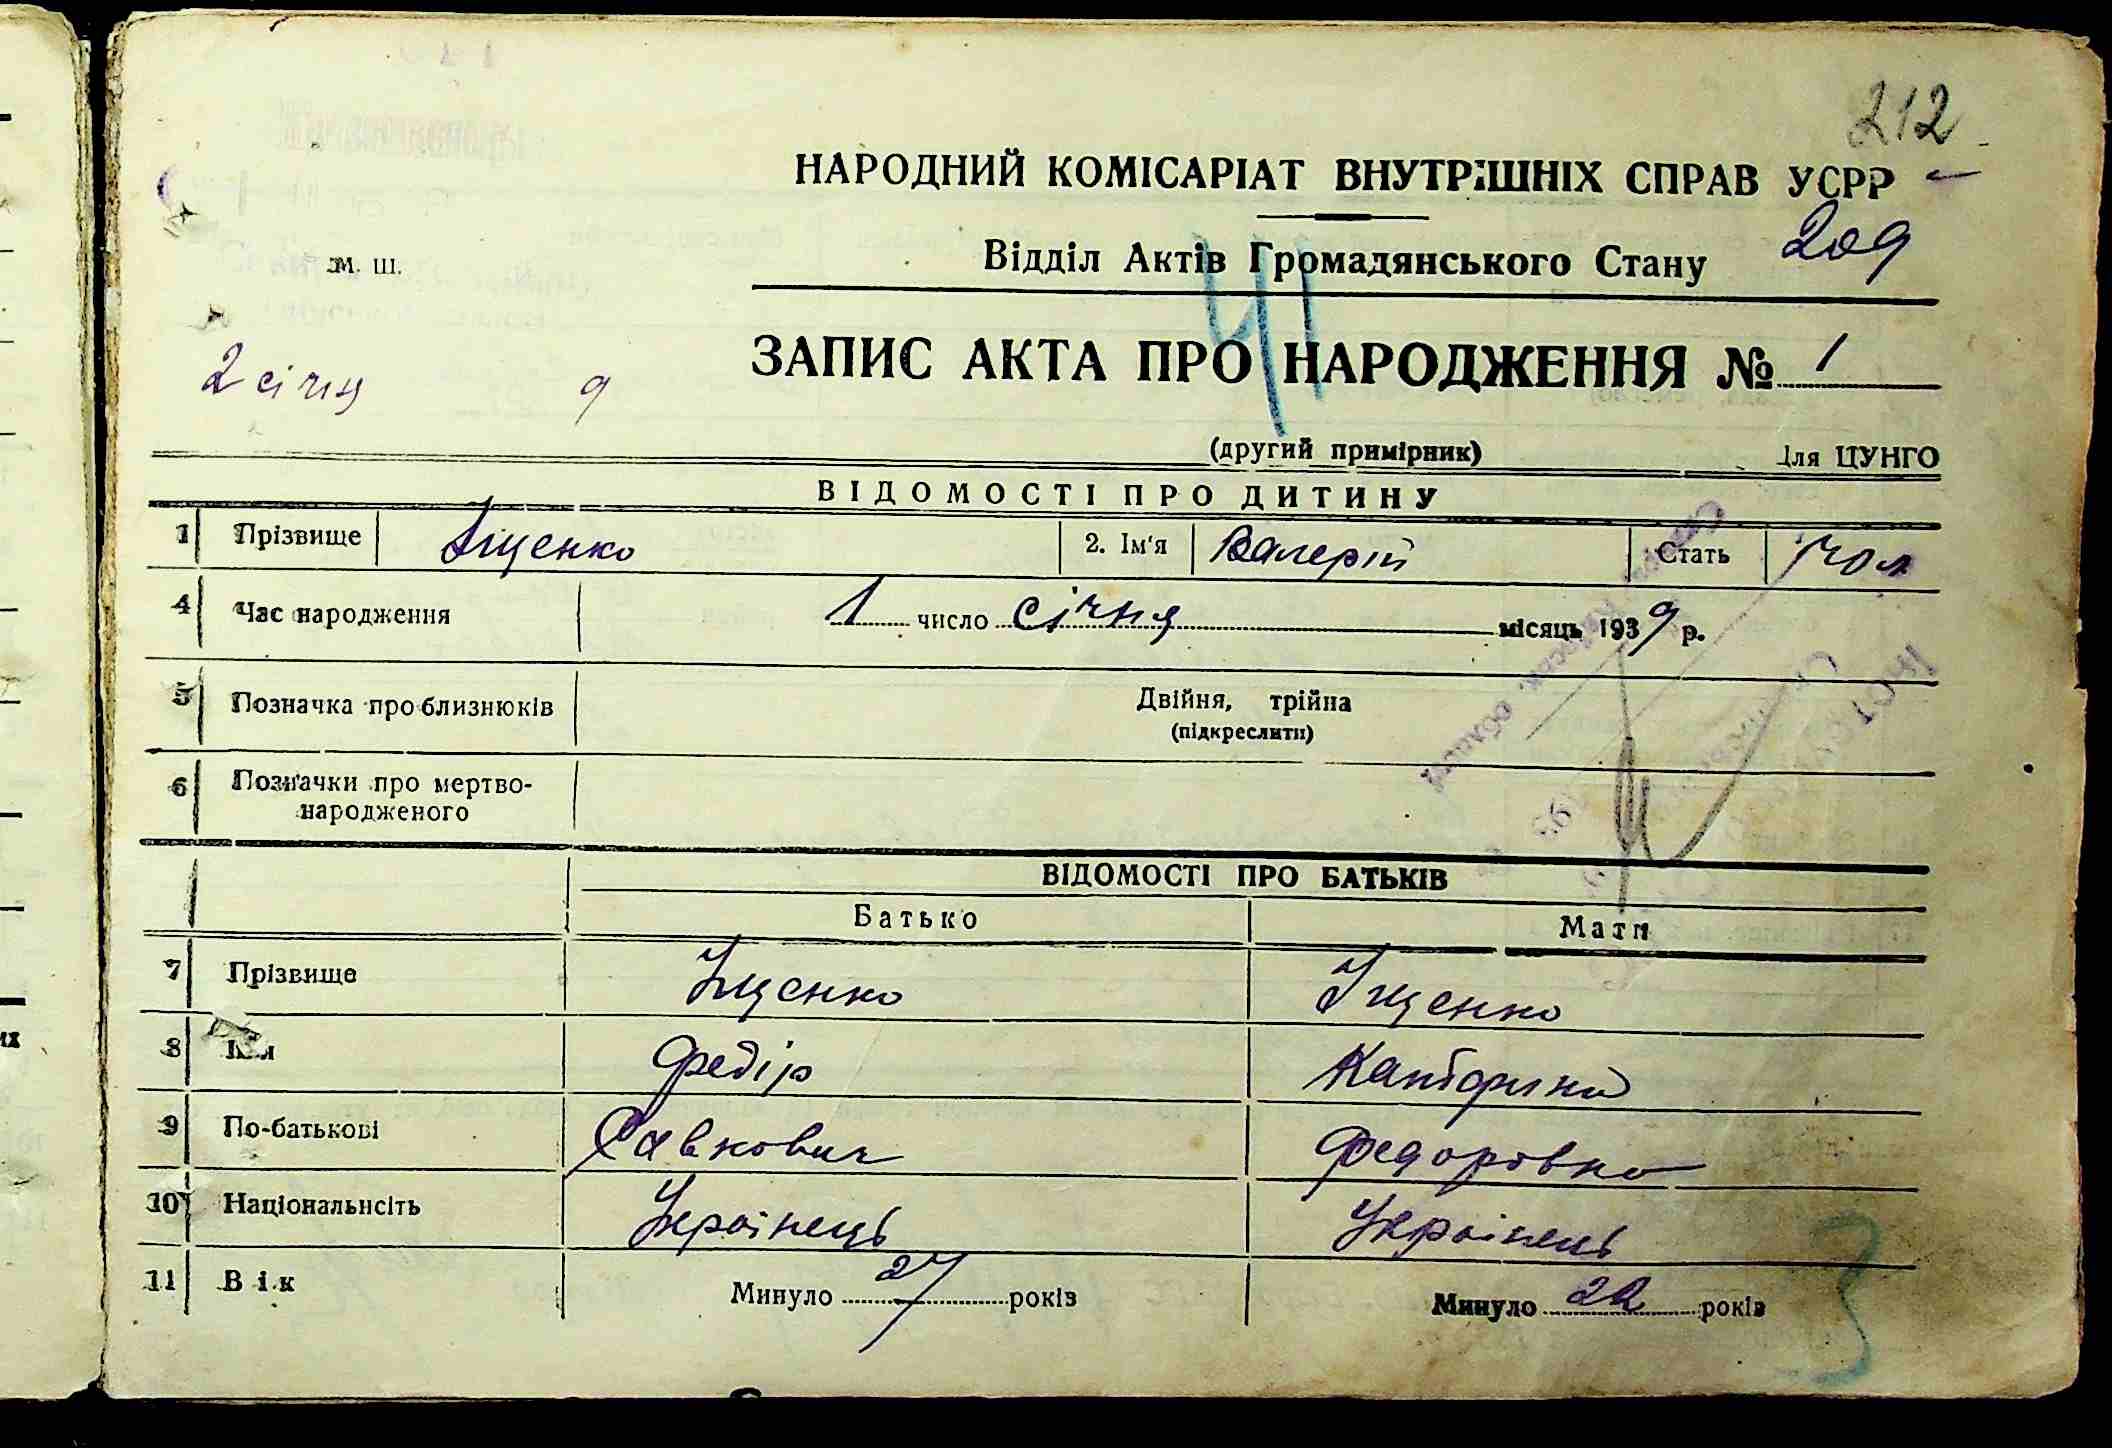 212
НАРОДНИЙ КОМІСАРІАТ ВНУТРІШНІХ СПРАВ УСРР
Відділ Актів Громадянського Стану 209
М. Ш.
41
ЗАПИС АКТА ПРО НАРОДЖЕННЯ № 1
2 січня 9
(другий примірник) Для ЦУНГО
ВІДОМОСТІ ПРО ДИТИНУ
1 Прізвище Іщенко 2. Ім'я Валерій Стать чол
4 Час народження 1 число січня місяць 1939 р.
5 Позначка про близнюків Двійня, трійна
(підкреслити)
6 Позначки про мертво-
народженого
ВІДОМОСТІ ПРО БАТЬКІВ
Батько Мати
7 Прізвище Іщенко Іщенко
8 Ім'я Федір Катерина
9 По-батькові Савкович Федоровна
10 Національнсіть Українець Українець
11 Вік Минуло 27 років Минуло 22 років
3